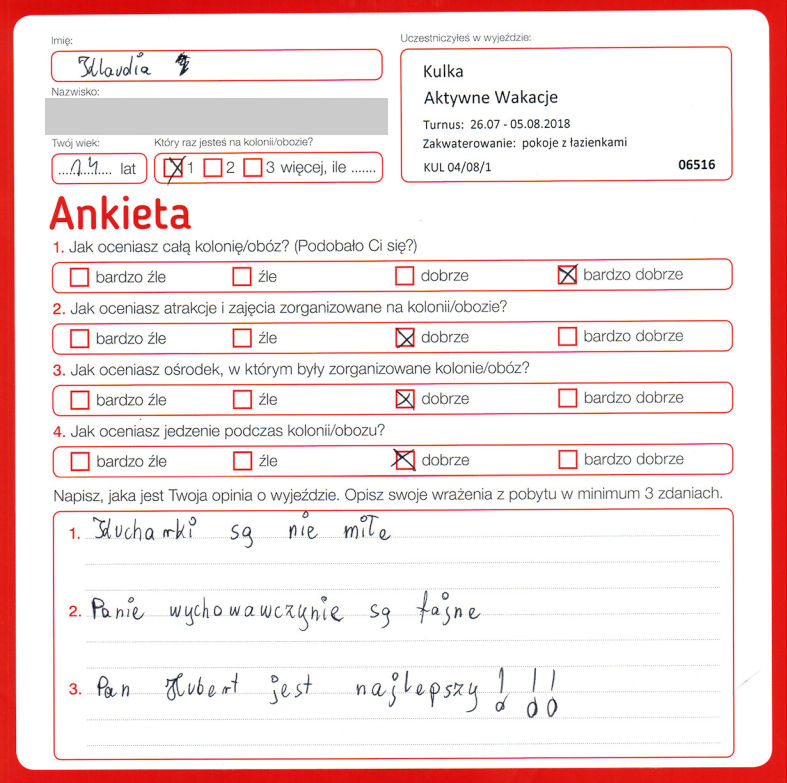 Imię:
Klaudia
Nazwisko:
Twój wiek:
14 lat
Który raz jesteś na kolonii/obozie?
1 2 3 więcej, ile .......
Uczestniczyłeś w wyjeździe:
Kulka
Aktywne Wakacje
Turnus: 26.07 - 05.08.2018
Zakwaterowanie: pokoje z łazienkami
KUL 04/08/1 06516
Ankieta
1. Jak oceniasz całą kolonię/obóz? (Podobało Ci się?)
bardzo źle źle dobrze bardzo dobrze
2. Jak oceniasz atrakcje i zajęcia zorganizowane na kolonii/obozie?
bardzo źle źle dobrze bardzo dobrze
3. Jak oceniasz ośrodek, w którym były zorganizowane kolonie/obóz?
bardzo źle źle dobrze bardzo dobrze
4. Jak oceniasz jedzenie podczas kolonii/obozu?
bardzo źle źle dobrze bardzo dobrze
Napisz, jaka jest Twoja opinia o wyjeździe. Opisz swoje wrażenia z pobytu w minimum 3 zdaniach.
1. Kucharki są nie miłe
2. Panie wychowawczynie są fajne
3. Pan Hubert jest najlepszy!!!